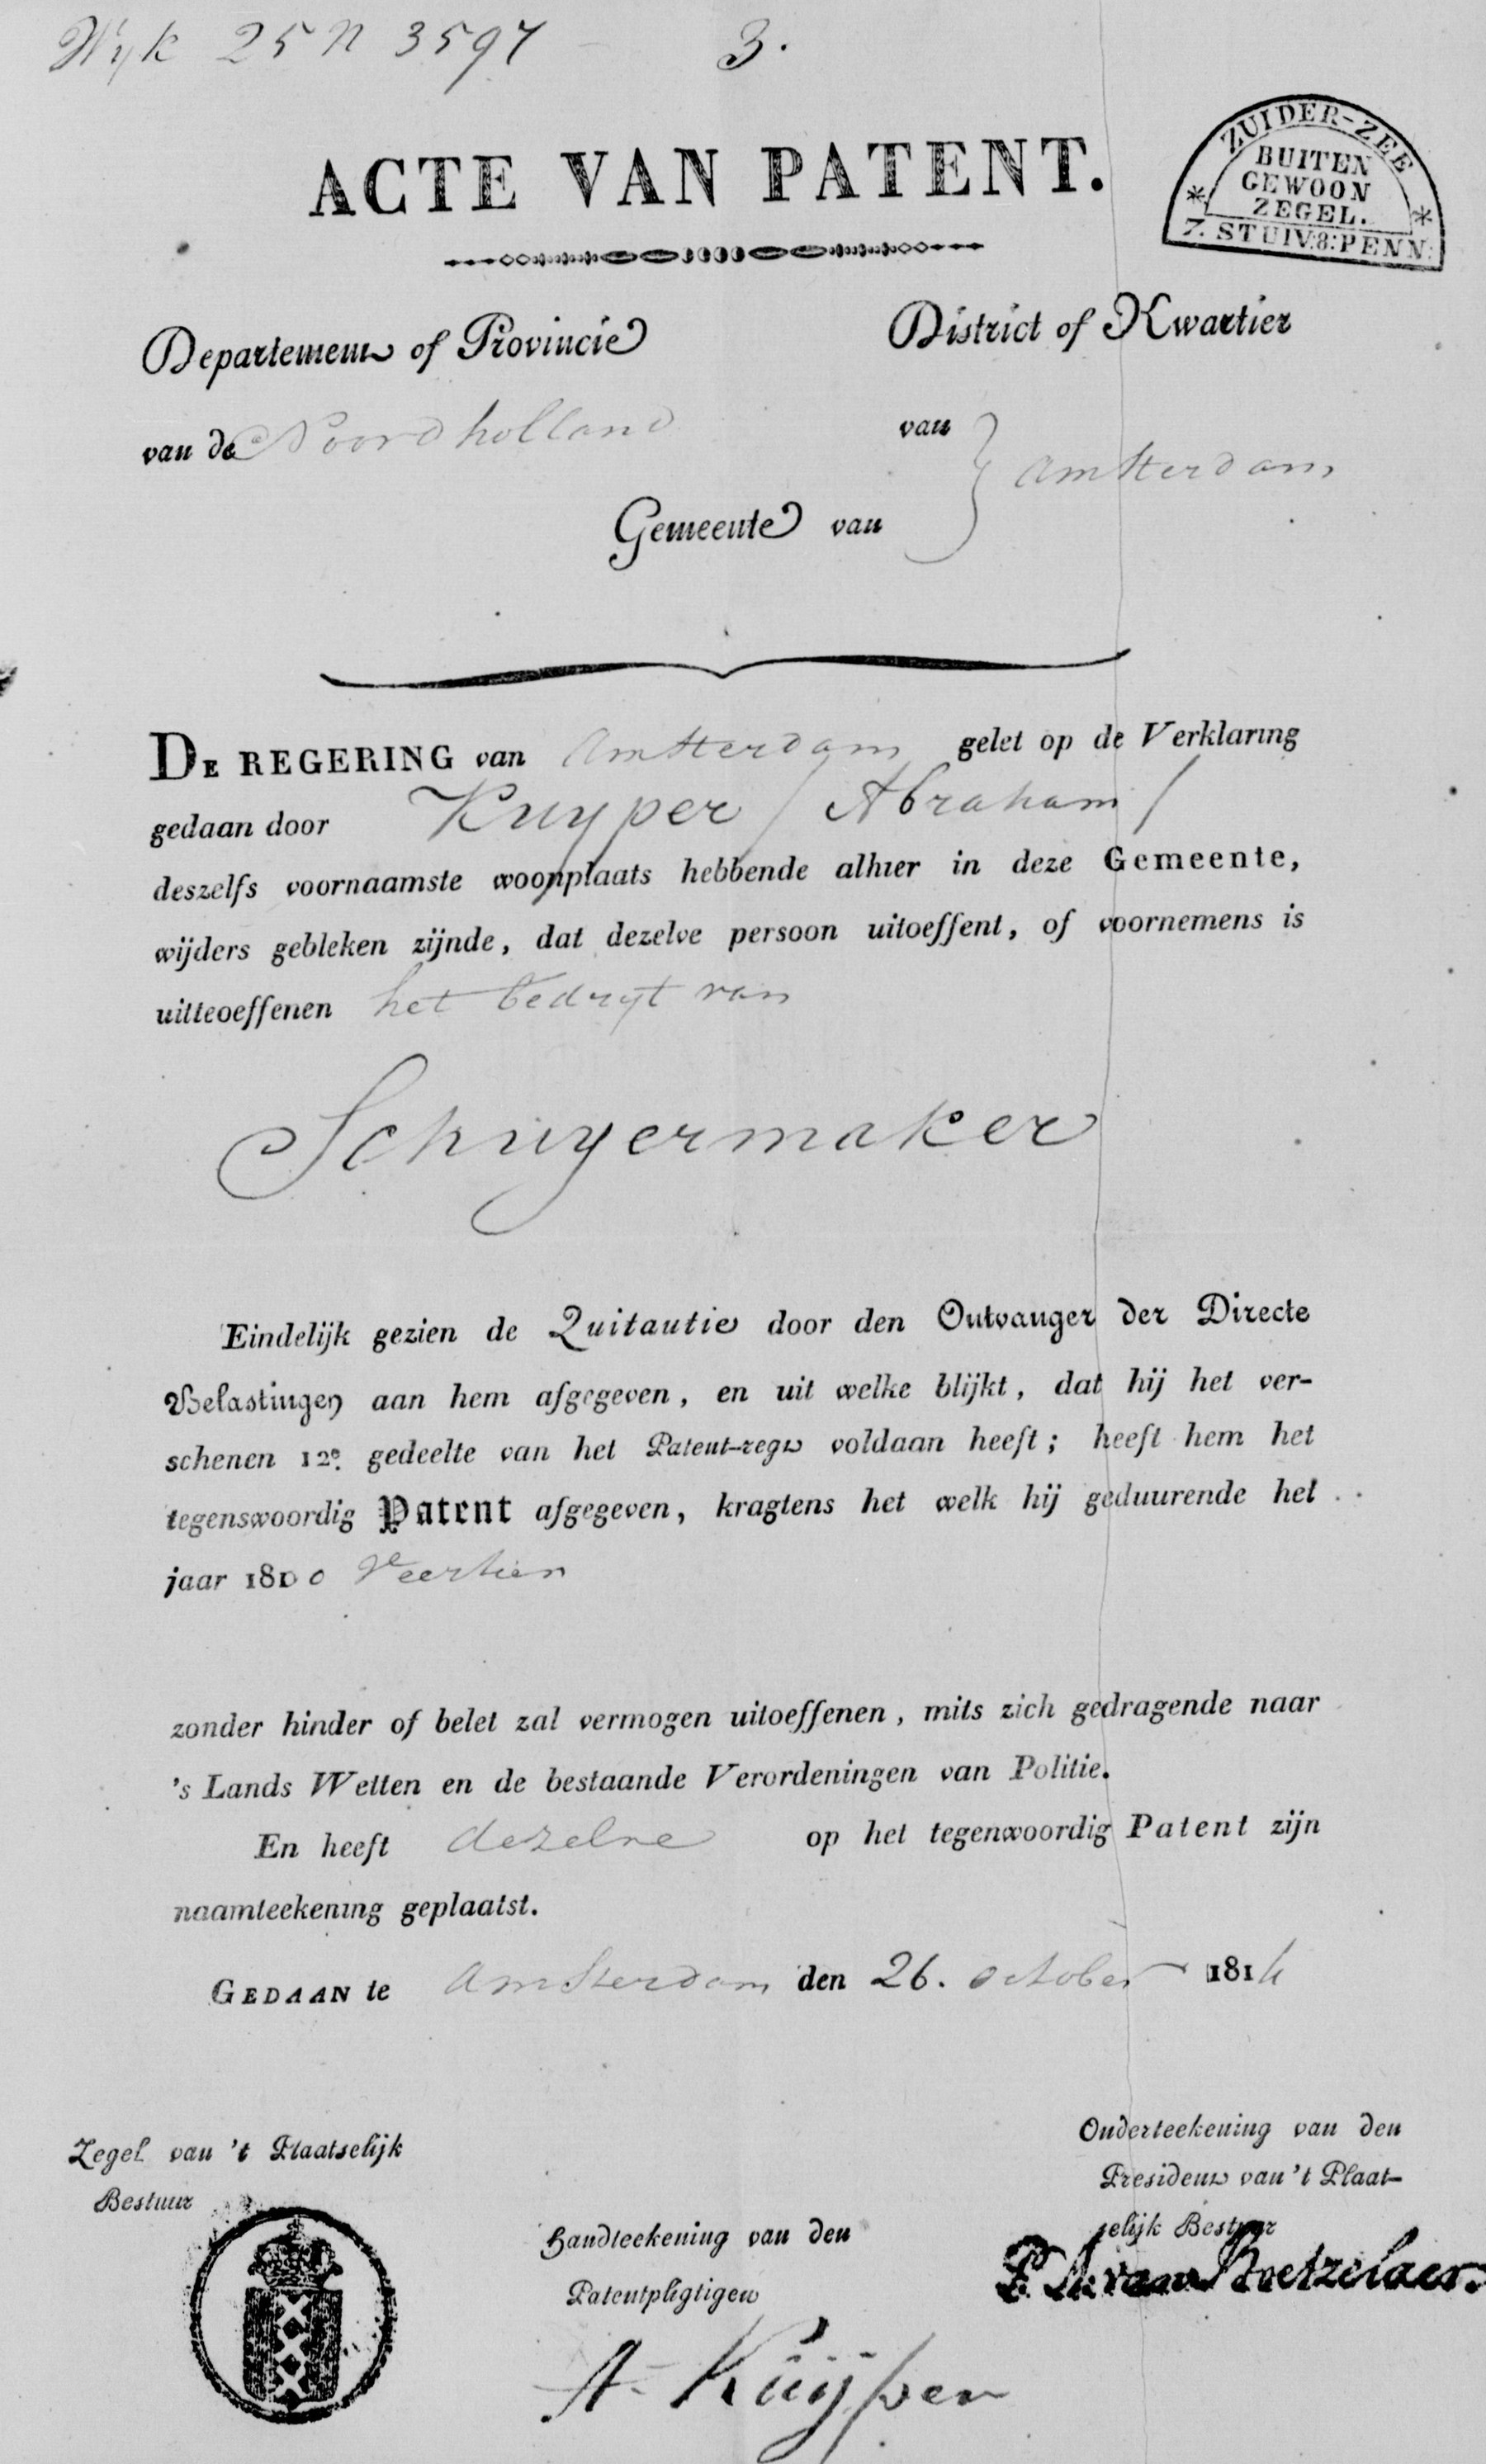 Wyk 25 N 3597 3.
ACTE VAN PATENT.
ZUIDER-ZEE
BUITEN
GEWOON
ZEGEL.
7. STUIV: 8: PENN:
Departement of Provincie
District of Kwartier
van de Noordholland
van
Amsterdam
Gemeente van
DE REGERING van Amsterdam gelet op de Verklaring
gedaan door Kuyper / Abraham /
deszelfs voornaamste woonplaats hebbende alhier in deze Gemeente,
wijders gebleken zijnde, dat dezelve persoon uitoeffent, of voornemens is
uitteoeffenen het bedryf van
Schuyermaker
Eindelijk gezien de Quitantie door den Ontvanger der Directe
Belastingen aan hem afgegeven, en uit welke blijkt, dat hij het ver-
schenen 12e. gedeelte van het Patent-regt voldaan heeft; heeft hem het
tegenswoordig Patent afgegeven, kragtens het welk hij geduurende het
jaar 1800 Veertien
zonder hinder of belet zal vermogen uitoeffenen, mits zich gedragende naar
's Lands Wetten en de bestaande Verordeningen van Politie.
En heeft dezelve op het tegenwoordig Patent zijn
naamteekening geplaatst.
GEDAAN te Amsterdam den 26. october 1814
Zegel van 't Plaatselijk
Bestuur
Onderteekening van den
President van 't Plaat-
selijk Bestuur
Handteekening van den
Patentpligtigen
van Boetzelaer.
A. Kuÿper